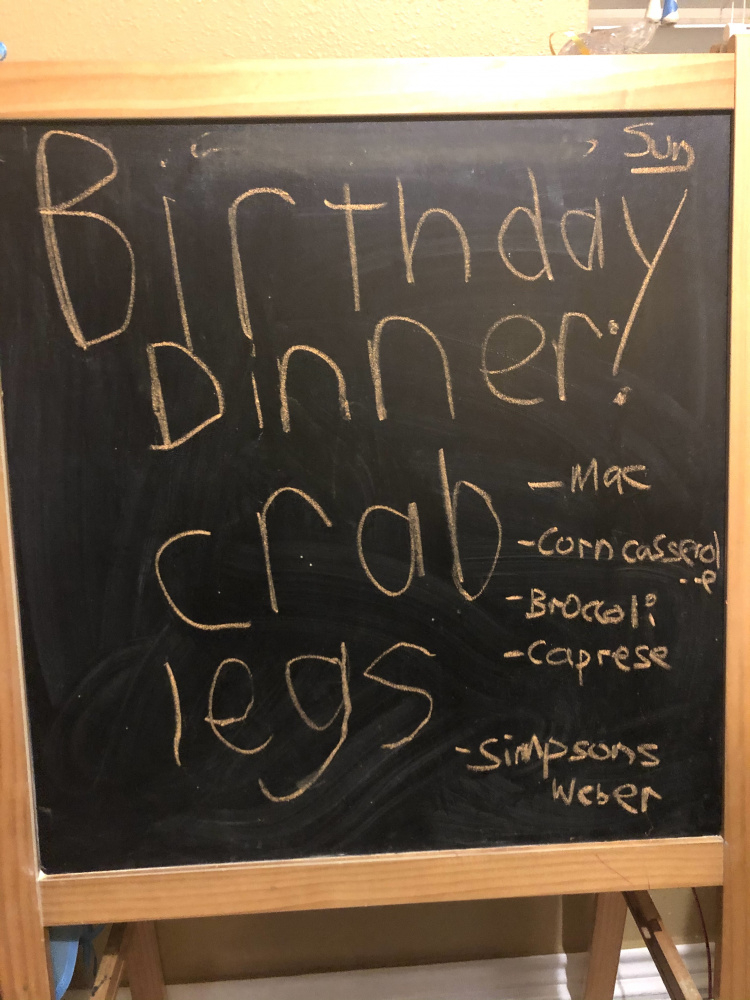 Sun
Birthday
Dinner!
crab
legs
- Mac
- Corn casserol
--e
- Broccoli
- caprese
- Simpsons
Weber